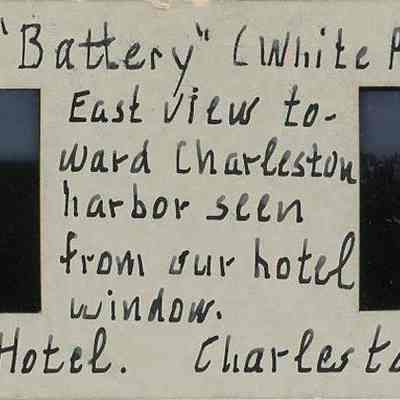 "Battery" (White P
East view to-
ward Charleston
harbor seen
from our hotel
window.
Hotel. Charlesto